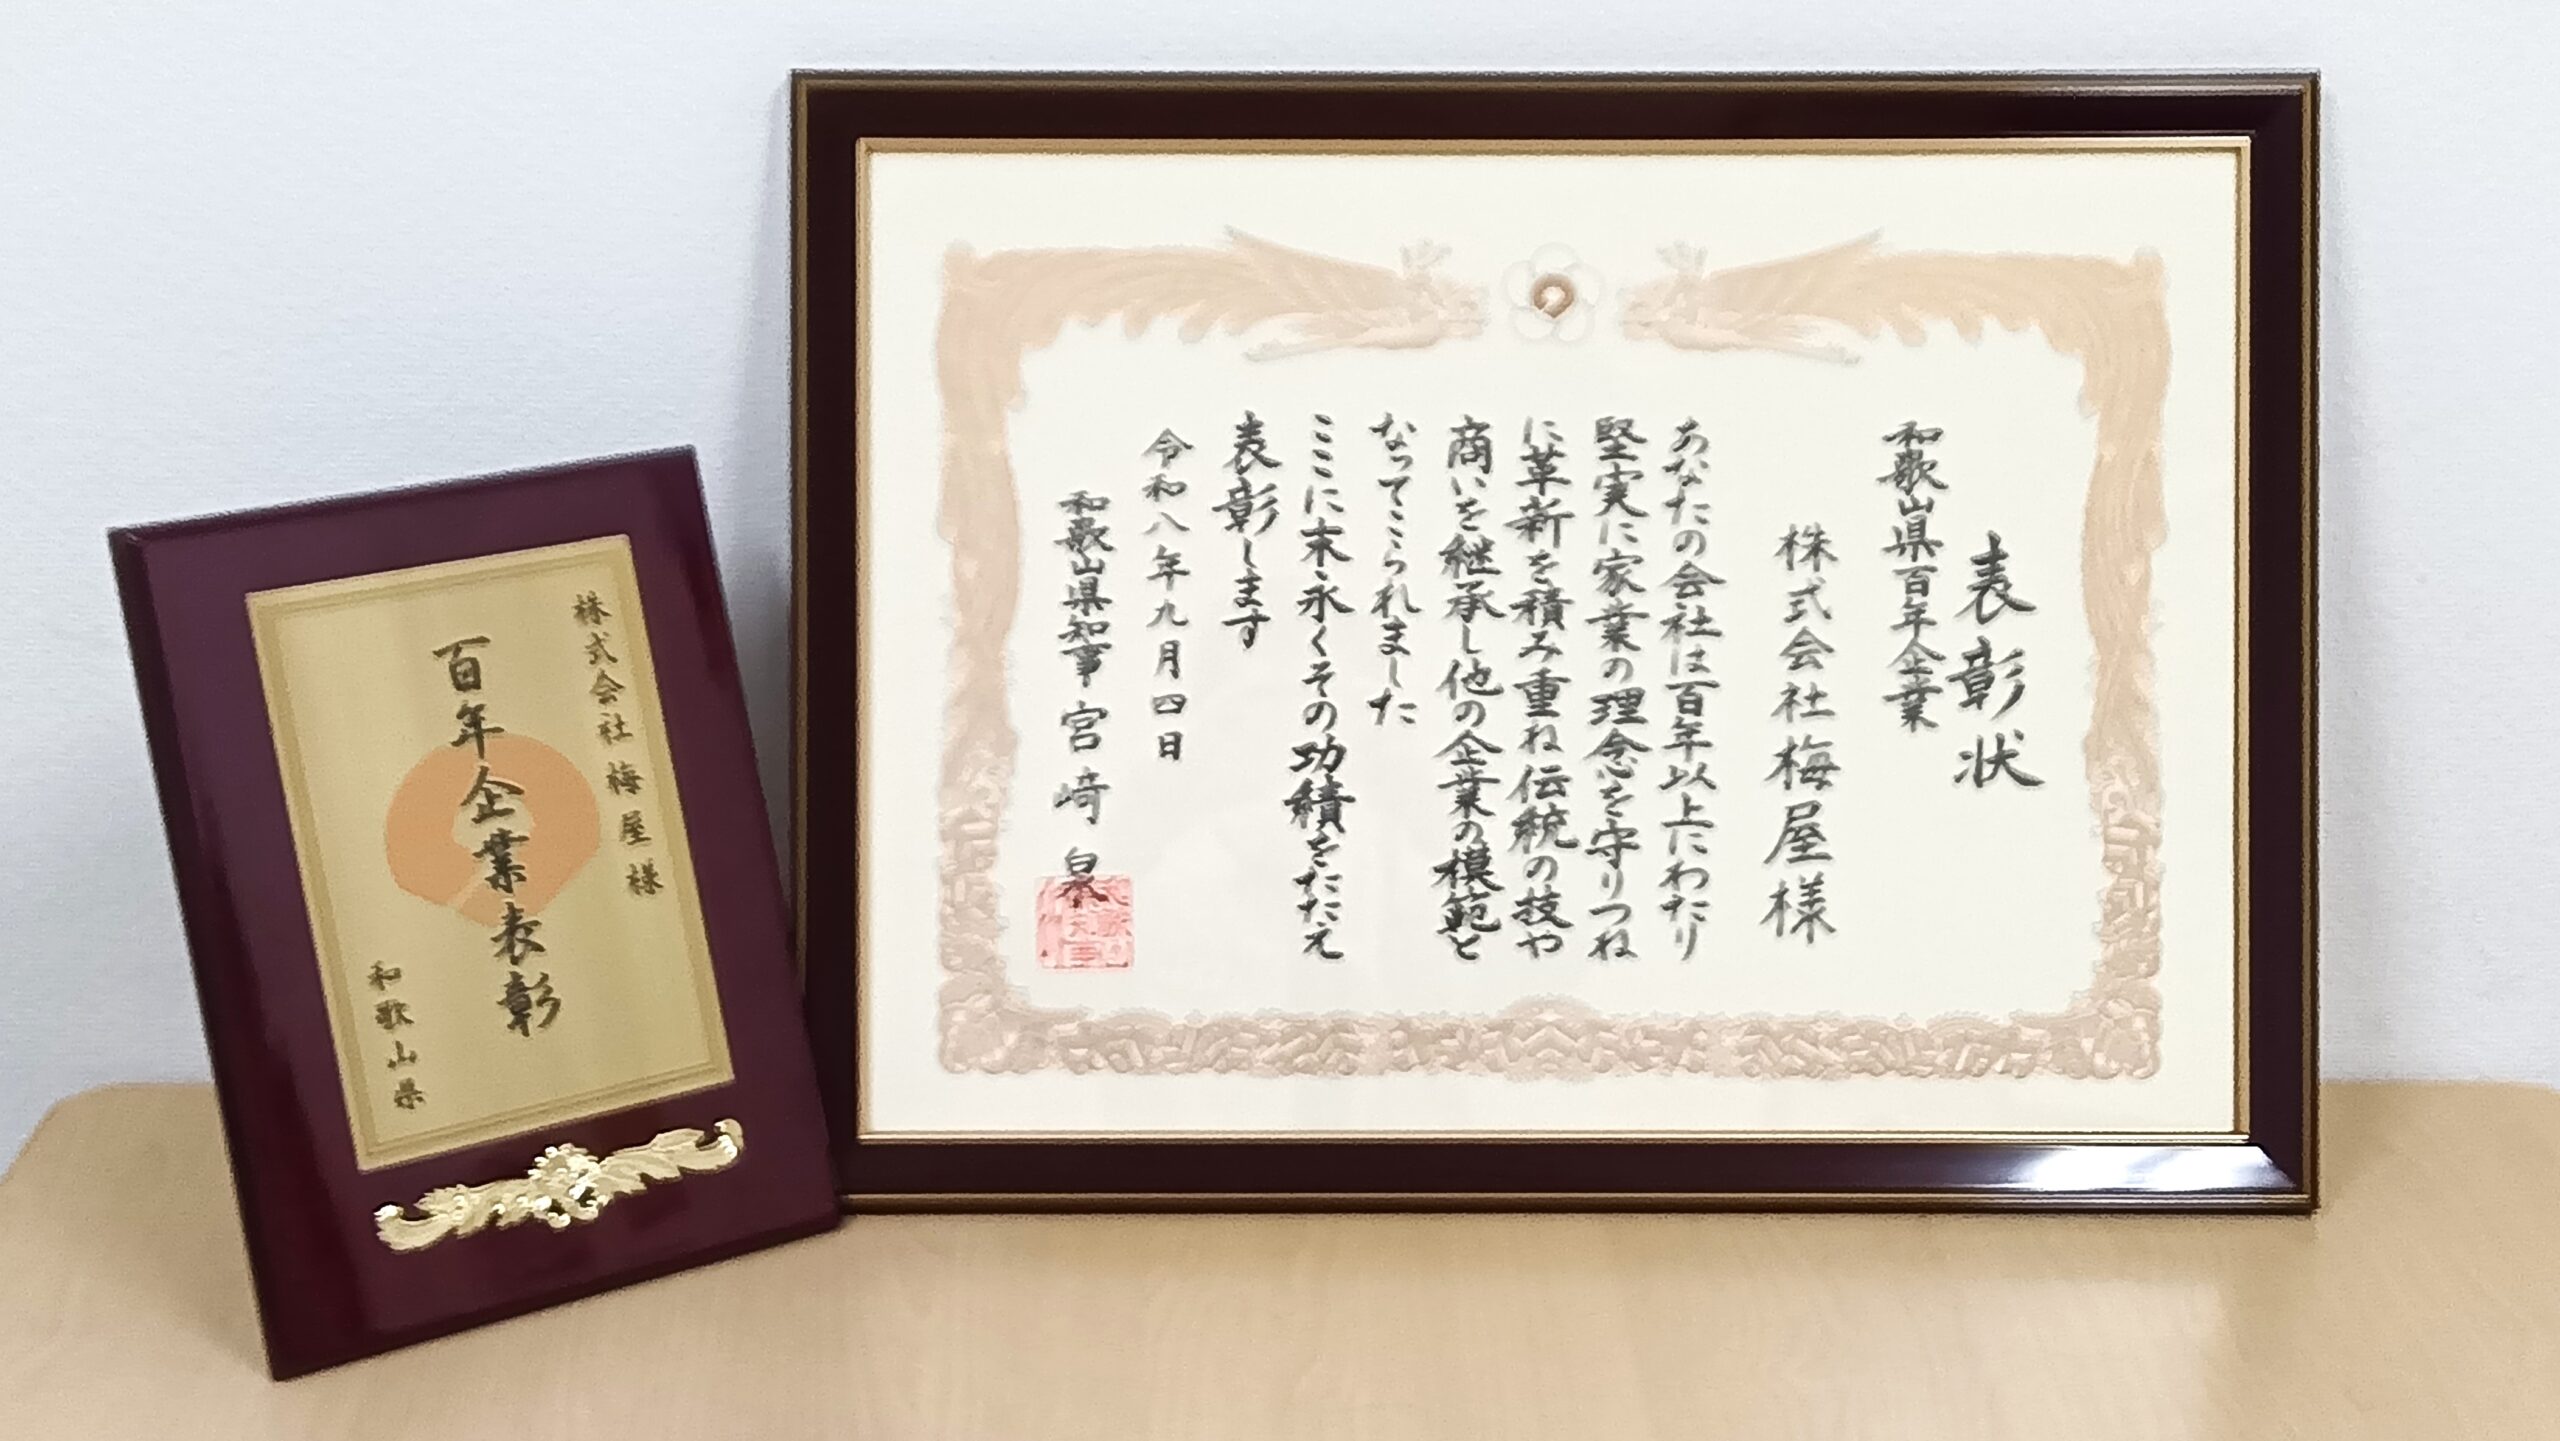 株式会社梅屋様
百年企業表彰
和歌山県
表彰状
和歌山県百年企業
株式会社梅屋様
あなたの会社は百年以上にわたり
堅実に家業の理念を守りつね
に革新を積み重ね伝統の技や
商いを継承し他の企業の模範と
なってこられました
ここに末永くその功績をたたえ
表彰します
令和八年九月四日
和歌山県知事 宮﨑 泉